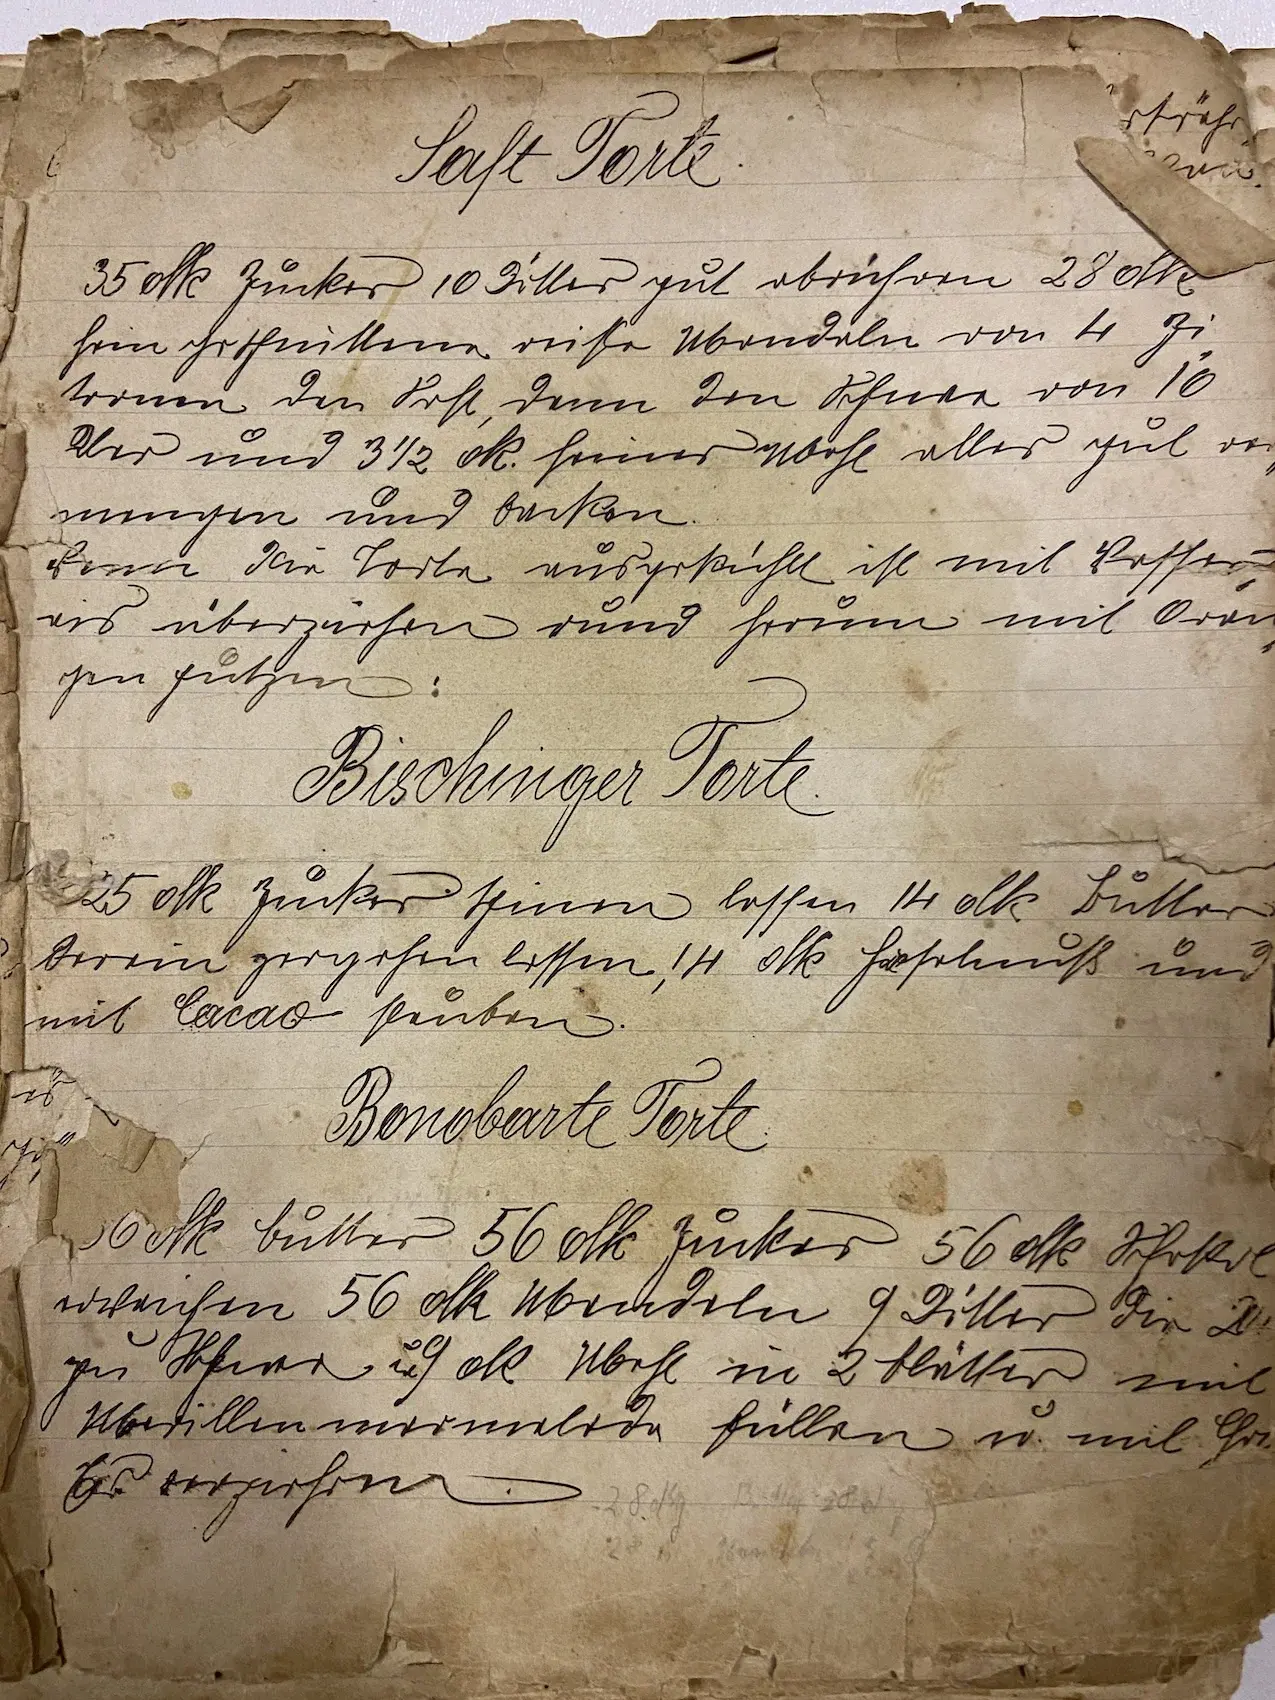 Saft Torte.
35 dk Zucker 10 Ditter gut abrühren 28 dk
fein geschnittene reife Mandeln von 4 Zi
tronen den Saft, dann den Schnee von 10
Eier und 3 1/2 dk. feines Mehl alles gut ver
mengen und backen.
Wenn die Torte ausgekühlt ist mit Wasser
eis überziehen rund herum mit Oran
gen putzen:
Bischinger Torte.
25 dk Zucker spinen lassen 14 dk Butter
darein zergehen lassen, 14 dk Haselnuß und
mit Cacao stauben.
Bonobarte Torte.
6 dk butter 56 dk Zucker 56 dk Schokol
erweichen 56 dk Mandeln 9 Ditter die
zu Schnee u 9 dk Mehl in 2 blätter mit
Marillenmarmelade füllen u. mit
verziehen.
28 dkg